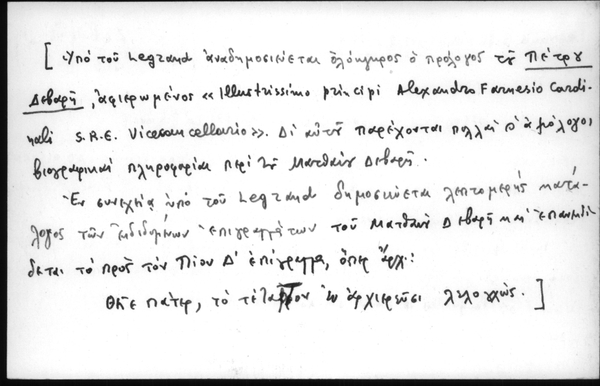 [ Ὑπό τοῦ Legrand ἀναδημοσιεύεται ὁλόκληρος ὁ πρόλογος τοῦ Πέτρου
Δεβαρῆ, ἀφιερωμένος «Illustrissimo principi Alexandro Farnesio Cardi-
nali S.R.E. Vicecancellario». Δι' αὐτοῦ παρέχονται πολλαί
βιογραφικαί πληροφορίαι περί τοῦ Ματθαίου Δεβαρῆ.
Ἐν συνεχείᾳ ὑπό τοῦ Legrand δημοσιεύεται λεπτομερής κατά-
λογος τῶν ἐκδιδομένων ἐπιγραμμάτων τοῦ Ματθαίου Δεβαρῆ καί ἐπανεκδί-
δεται τό πρός τόν Πίον Δ' ἐπίγραμμα, ὅπερ ἄρχ:
Θεῖε πάτερ, τό τέταρτον ἐν ἀρχιερεῦσι λελογχώς. ]